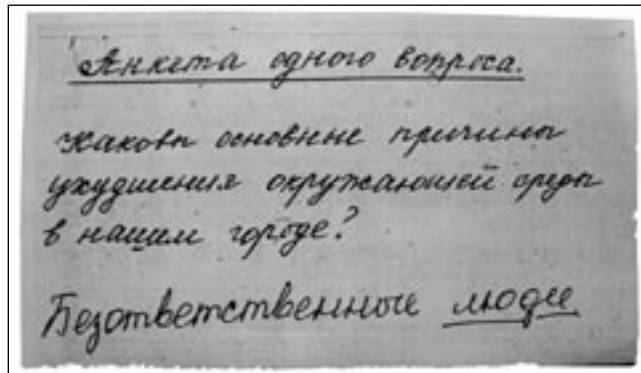 Анкета одного вопроса.
Каковы основные причины
ухудшения окружающей среды
в нашем городе?
Безответственные люди